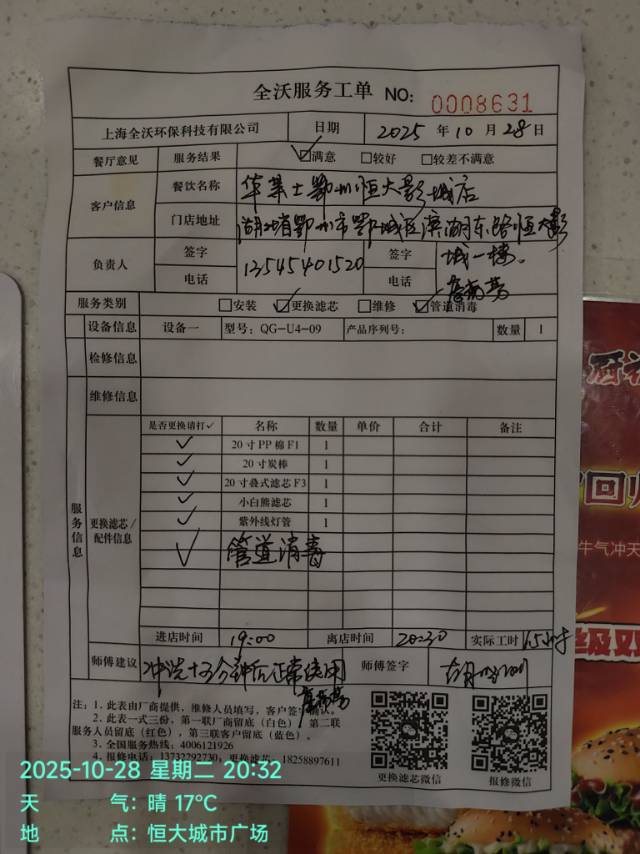 全沃服务工单 NO: 0008631
上海全沃环保科技有限公司 日期 2025 年 10 月 28 日
餐厅意见 服务结果 ☑满意 □较好 □较差不满意
客户信息 餐饮名称 华莱士鄂州恒大影城店
门店地址 湖北省鄂州市鄂城区滨湖东路恒大影
城一楼。
负责人 签字 签字
电话 13545401520 电话
服务类别 □安装 ☑更换滤芯 □维修 ☑管道消毒
设备信息 设备一 型号: QG-U4-09 产品序列号: 数量 1
检修信息
维修信息
服务信息
更换滤芯/配件信息
是否更换请打✓ 名称 数量 单价 合计 备注
✓ 20寸PP棉F1 1
✓ 20寸炭棒 1
✓ 20寸叠式滤芯F3 1
✓ 小白熊滤芯 1
✓ 紫外线灯管 1
✓ 管道消毒
进店时间 19:00 离店时间 20:30 实际工时 1.5小时
师傅建议 冲洗十五分钟后正常使用 师傅签字
注: 1. 此表由厂商提供, 维修人员填写, 客户签字确认。
2. 此表一式三份, 第一联厂商留底(白色), 第二联
服务人员留底(红色), 第三联客户留底(蓝色)。
3. 全国服务热线: 4006121926
4. 报修电话: 13732292730; 更换滤芯: 18258897611
更换滤芯微信 报修微信
2025-10-28 星期二 20:32
天 气: 晴 17℃
地 点: 恒大城市广场
回归
牛气冲天